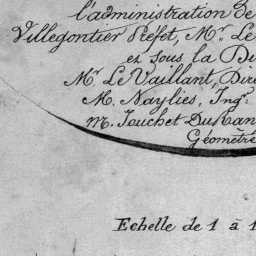 l'administration de
Villegontier Préfet, Mr. Le
et sous la Di
Mr. Le Vaillant, Dir
M. Naylies, Ingr.
M. Jouchet DuRan
Géomètre
Echelle de 1 à 1